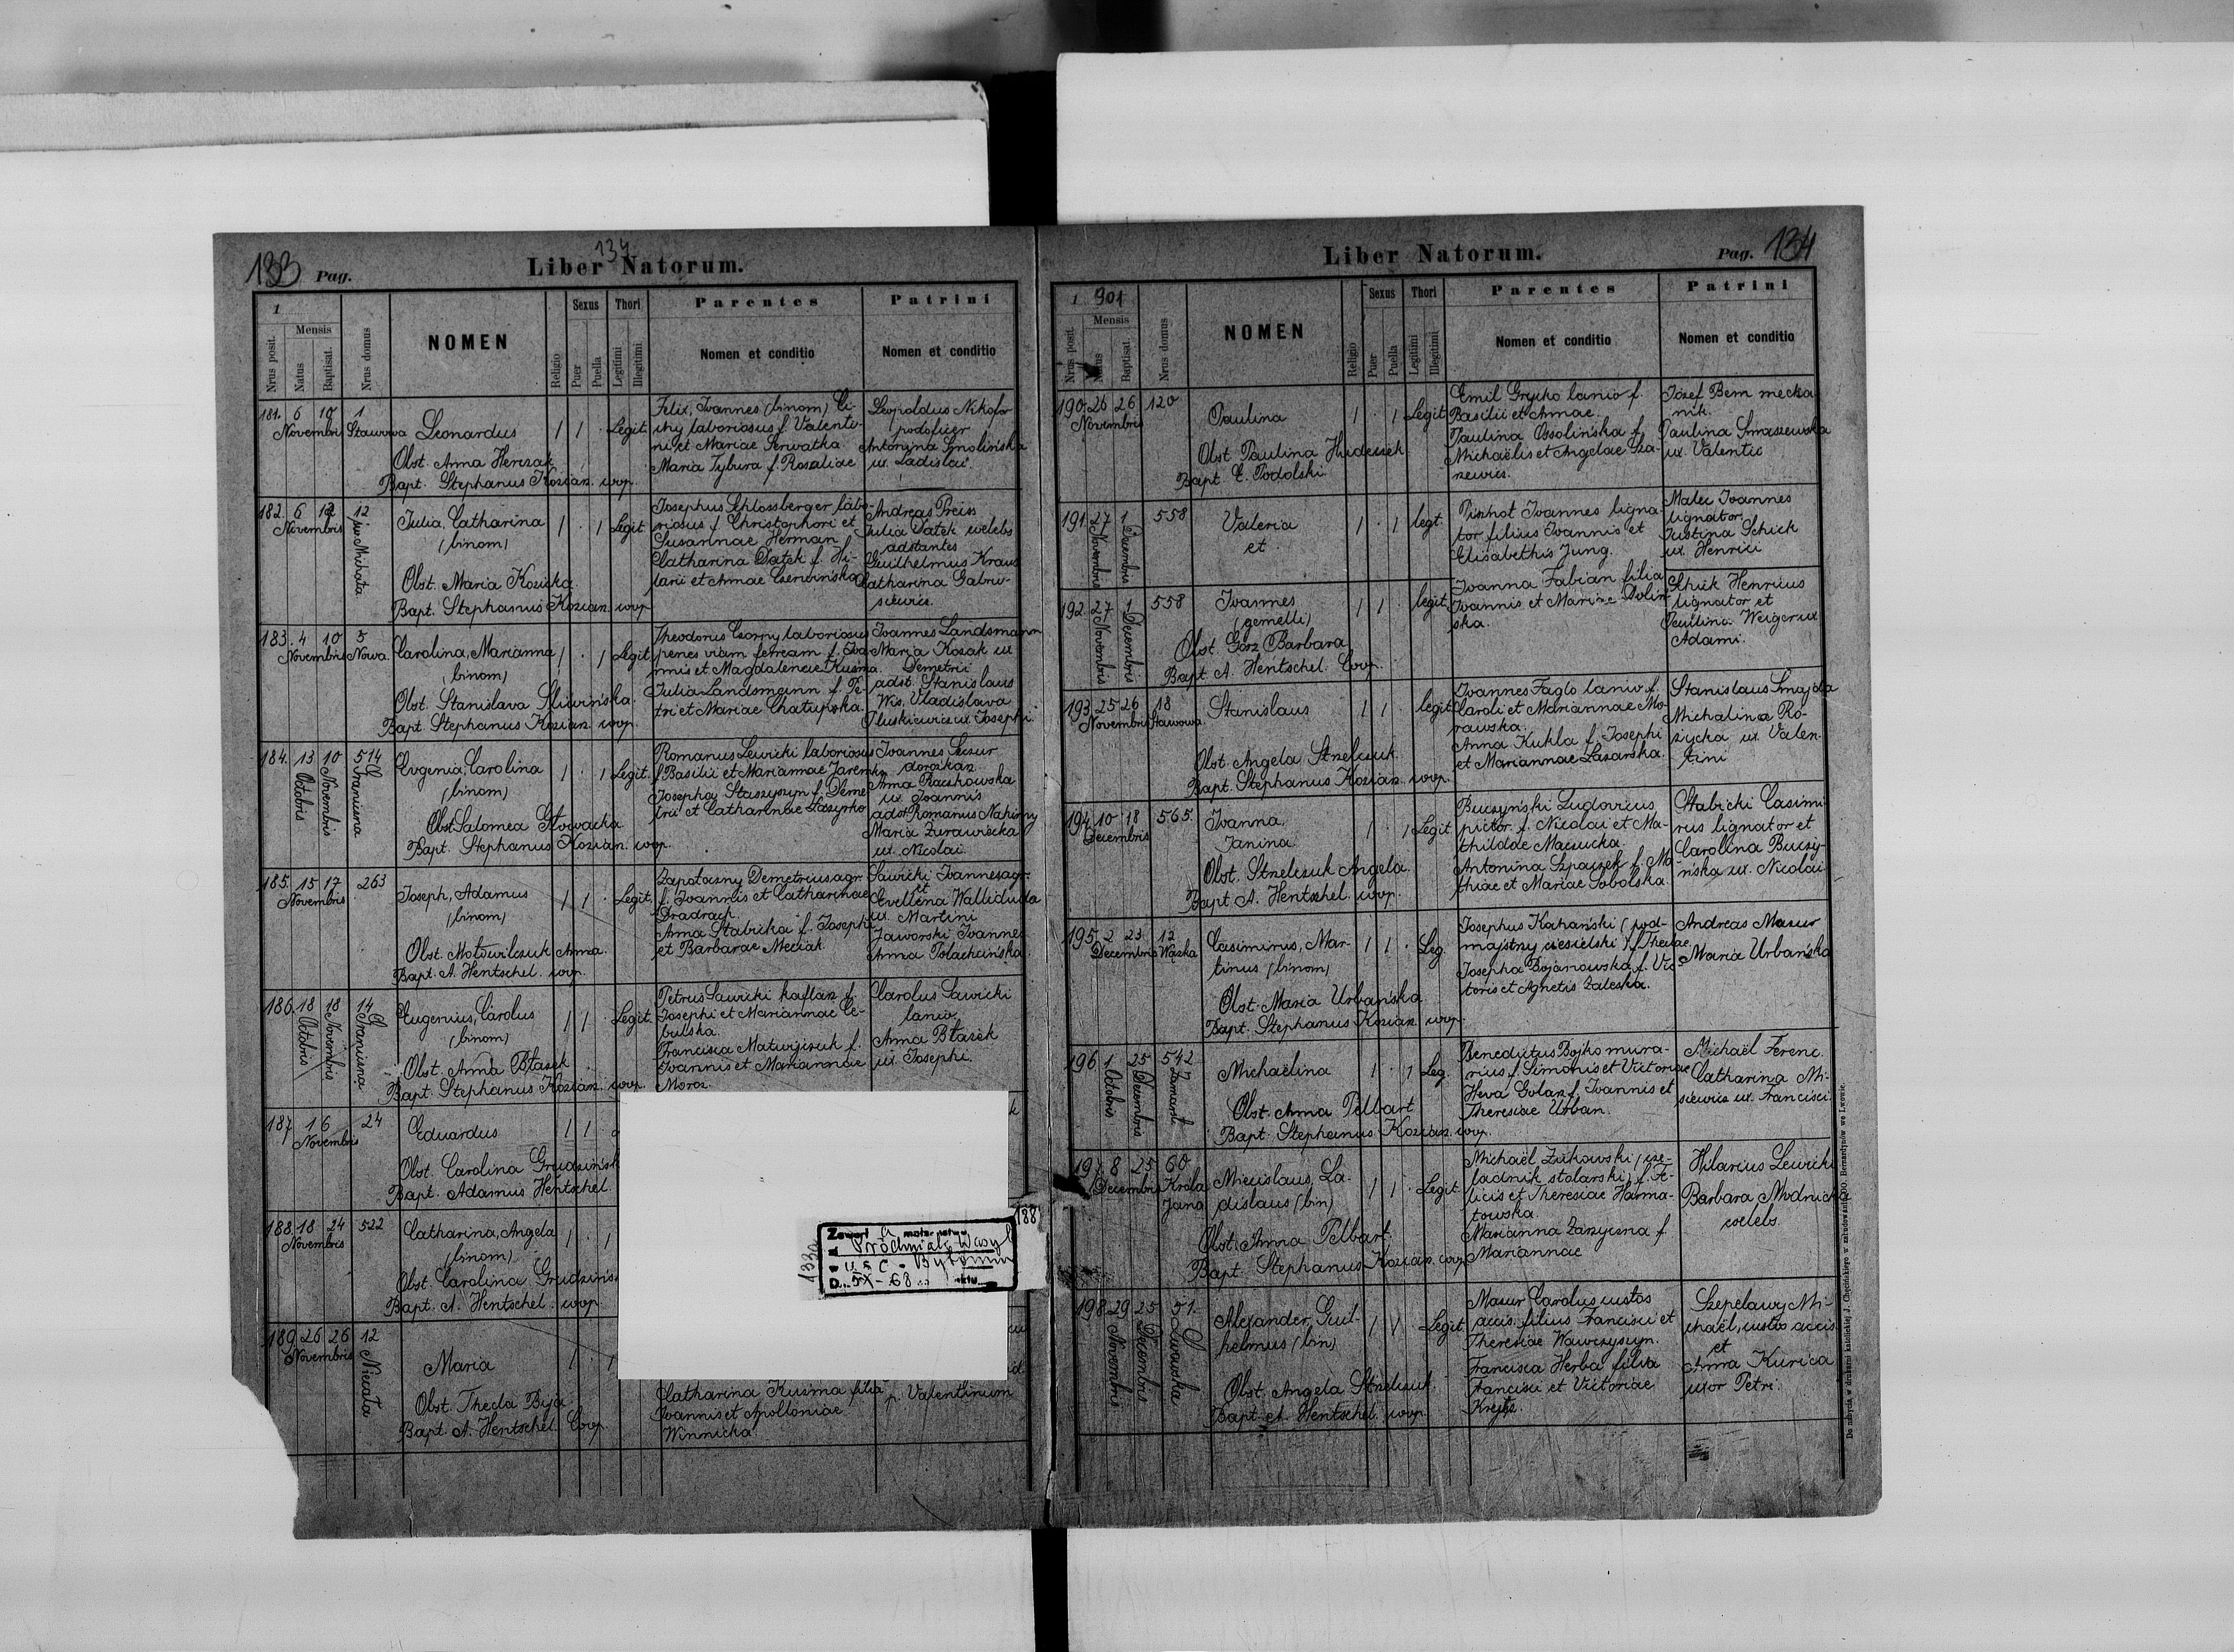 133 Pag.
134
Liber Natorum.
1
Nrus posit.
Mensis
Natus
Baptisat.
Nrus domus
NOMEN
Religio
Sexus
Puer
Puella
Thori
Legitimi
Illegitimi
Parentes
Nomen et conditio
Patrini
Nomen et conditio
181. 6 10 1
Novembris Stawowa
Leonardus
1 1 . Legit.
Obst. Anna Herczak
Bapt. Stephanus Kozian. coop.
Felix, Joannes (binom) Ci-
chy laboriosus f. Valenti-
ni et Mariae Serwatka
Maria Tybura f. Rosaliae
Leopoldus Nikofor
podoficer
Antonina Smolińska
ux. Ladislai
182. 6 12 12
Novembris
Św. Michała
Julia, Catharina
(binom)
1 . 1 Legit.
Obst. Maria Kozicka
Bapt. Stephanus Kozian. coop.
Josephus Schlossberger labo-
riosus f. Christophori et
Susannae Herman
Catharina Datek f. Hi-
larii et Annae Czerwińska
Andreas Preiss
Julia Datek coelebs
adstantes
Guilhelmus Kraus
Catharina Gabru-
siewicz.
183. 4 10 5
Novembris Nowa.
Carolina, Marianna
(binom)
1 . 1 Legit.
Obst. Stanislava Sliwińska.
Bapt. Stephanus Kozian. coop.
Theodorus Czorny laboriosus
penes viam ferream f. Joa-
nnis et Magdalenae Kusma.
Julia Landsmann f. Pe-
tri et Mariae Chatupska.
Joannes Landsmann
Maria Kozak ux
Demetrii
adst. Stanislaus
Wis, Vladislava
Pluskiewicz ux. Josephi.
184. 13 10 514
Octobris
Novembris
Graniczna
Eugenia, Carolina
(binom)
1 . 1 Legit.
Obst. Salomea Głowacka
Bapt. Stephanus Kozian. coop.
Romanus Lewicki laboriosus
f. Basilii et Mariannae Jaremko
Josepha Staszyszyn f. Deme-
trii et Catharinae Łaszyrko
Joannes Secsur
dorożkarz
Anna Raschowska
ux. Joannis
adst. Romanus Nahirny
Maria Żurawiecka
ux. Nicolai
185. 15 17 263
Novembris
Joseph, Adamus
(binom)
1 1 . Legit.
Obst. Motowilczuk Anna.
Bapt. A. Hentschel. coop.
Zapotoczny Demetrius agr.
f. Joannis et Catharinae
Dradrach.
Anna Stabicka f. Josephi
et Barbarae Meciak
Sawicki Joannes agr.
et
Evellina Walliduda
ux. Martini
Jaworski Joannes
Anna Polachcińska
186. 18 18 14
Octobris
Novembris
Graniczna
Eugenius, Carolus
(binom)
1 1 . Legit.
Obst. Anna Błazek
Bapt. Stephanus Kozian. coop.
Petrus Sawicki kaflarz f.
Josephi et Mariannae Ce-
bulska.
Francisca Matwijczuk f.
Joannis et Mariannae
Moroz.
Carolus Sawicki
lanio.
Anna Błazek
ux. Josephi.
187. 16 24
Novembris
Eduardus
1 1 .
Obst. Carolina Grudzińsk
Bapt. Adamus Hentschel.
188. 18 24 522
Novembris
Catharina, Angela
(binom)
1 . 1
Obst. Carolina Grudzińs
Bapt. A. Hentschel. coop.
188
133a
Zawarł
Bytomiu
189. 26 26 12
Novembris
Niecała
Maria
1 . 1
Obst. Thecla Bija
Bapt. A. Hentschel Coop
Catharina Kuśma filia
Joannis et Apolloniae
Winnicka
p. Valentinum
Liber Natorum.
Pag. 134
1 901
Nrus posit.
Mensis
Natus
Baptisat.
Nrus domus
NOMEN
Religio
Sexus
Puer
Puella
Thori
Legitimi
Illegitimi
Parentes
Nomen et conditio
Patrini
Nomen et conditio
190. 26 26 120
Novembris
Paulina
1 . 1 Legit.
Obst. Paulina Hudeczek
Bapt. E. Podolski
Emil Gryćko lanio f.
Basilii et Annae.
Paulina Ossolińska f.
Michaëlis et Angelae Sza-
niewicz.
Józef Bem mecha-
nik.
Paulina Smaszewska
ux. Valentii
191. 27 1 558
Novembris
Decembris
Valeria
et
1 . 1 legt.
Pischot Joannes ligna-
tor filius Joannis et
Elisabethis Jung.
Malec Joannes
lignator
Justina Schick
ux. Henrici
192. 27 1 558
Novembris
Decembris
Joannes
(gemelli)
1 1 . legit.
Obst. Górz Barbara
Bapt. A. Hentschel. Coop.
Joanna Fabian filia
Joannis et Mariae Dolin-
ska.
Schick Henricus
lignator et
Paulina Weiger ux
Adami.
193. 25 26 18
Novembris Stawowa.
Stanislaus
1 1 . legit.
Obst. Angela Strzelczuk.
Bapt. Stephanus Kozian. coop.
Joannes Faglo lanio f.
Caroli et Mariannae Mo-
rawska.
Anna Kukla f. Josephi
et Mariannae Lazarska.
Stanislaus Smajda
Michalina Ro-
życka ux. Valen-
tini
194. 10 18 565.
Decembris
Joanna,
Janina
1 . 1 Legit.
Obst. Strzelczuk Angela.
Bapt. A. Hentschel. coop.
Buczyński Ludovicus
pictor f. Nicolai et Ma-
thildae Maciucka.
Antonina Szpaczek f. Ma-
thiae et Mariae Sobolska.
Stabicki Casimi-
rus lignator et
Carolina Buczy-
ńska ux. Nicolai
195. 2 23 12
Decembris Wąska
Casimirus, Mar-
tinus (binom)
1 1 . Leg.
Obst. Maria Urbańska
Bapt. Stephanus Kozian. coop.
Josephus Kahański (pod-
majstrzy ciesielski) f. Theclae
Josepha Bojanowska f. Vic-
toris et Agnetis Zaleska.
Andreas Mazur
Maria Urbańska
196. 1 25 542
Octobris
Decembris
Zamarst.
Michaëlina
1 . 1 Leg.
Obst. Anna Pelbart
Bapt. Stephanus Kozian. coop.
Benedictus Bojko mura-
rius f. Simonis et Victoriae
Heva Golarz f. Joannis et
Theresiae Urban.
Michaël Ferenc.
Catharina Mi-
siewicz ux. Francisci.
197. 8 25 60
Decembris Króla
Jana
Miecislaus, La-
dislaus (bin)
1 1 . Legit.
Obst. Anna Pelbart.
Bapt. Stephanus Kozian. coop.
Michaël Żukowski (cze-
ladnik stolarski) f. Fe-
licis et Theresiae Harma-
towska.
Marianna Zarzyczna f.
Mariannae
Hilarius Lewicki
Barbara Modnicka
coelebs.
198. 29 25 51.
Novembris
Decembris
Lwowska
Alexander, Guil-
helmus (bin)
1 1 . Legit.
Obst. Angela Strzelczuk.
Bapt. A. Hentschel. coop.
Mazur Carolus custos
accis. filius Francisci et
Theresiae Wawrzyszyn.
Francisca Herba filia
Francisci et Victoriae
Krejcz.
Szepelawy Mi-
chaël, custos accis
et
Anna Kurica
uxor Petri.
Do nabycia w drukarni katolickiej J. Chęcińskiego w zabudowaniu OO. Bernardynów we Lwowie.